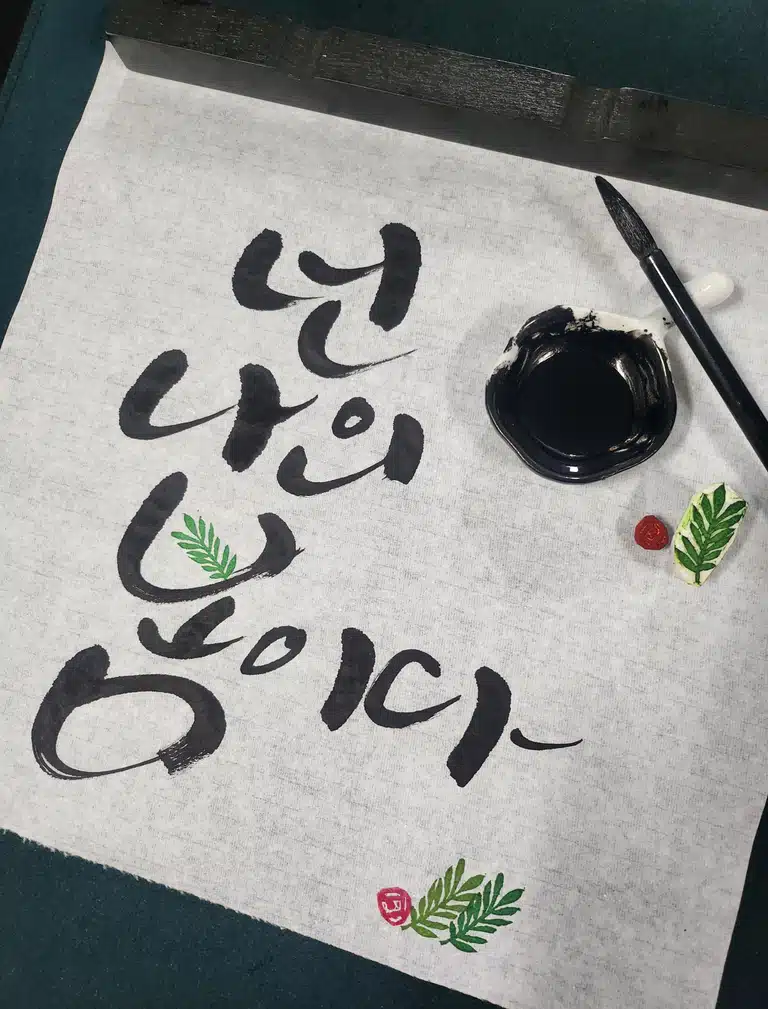 넌
나의
봄이다